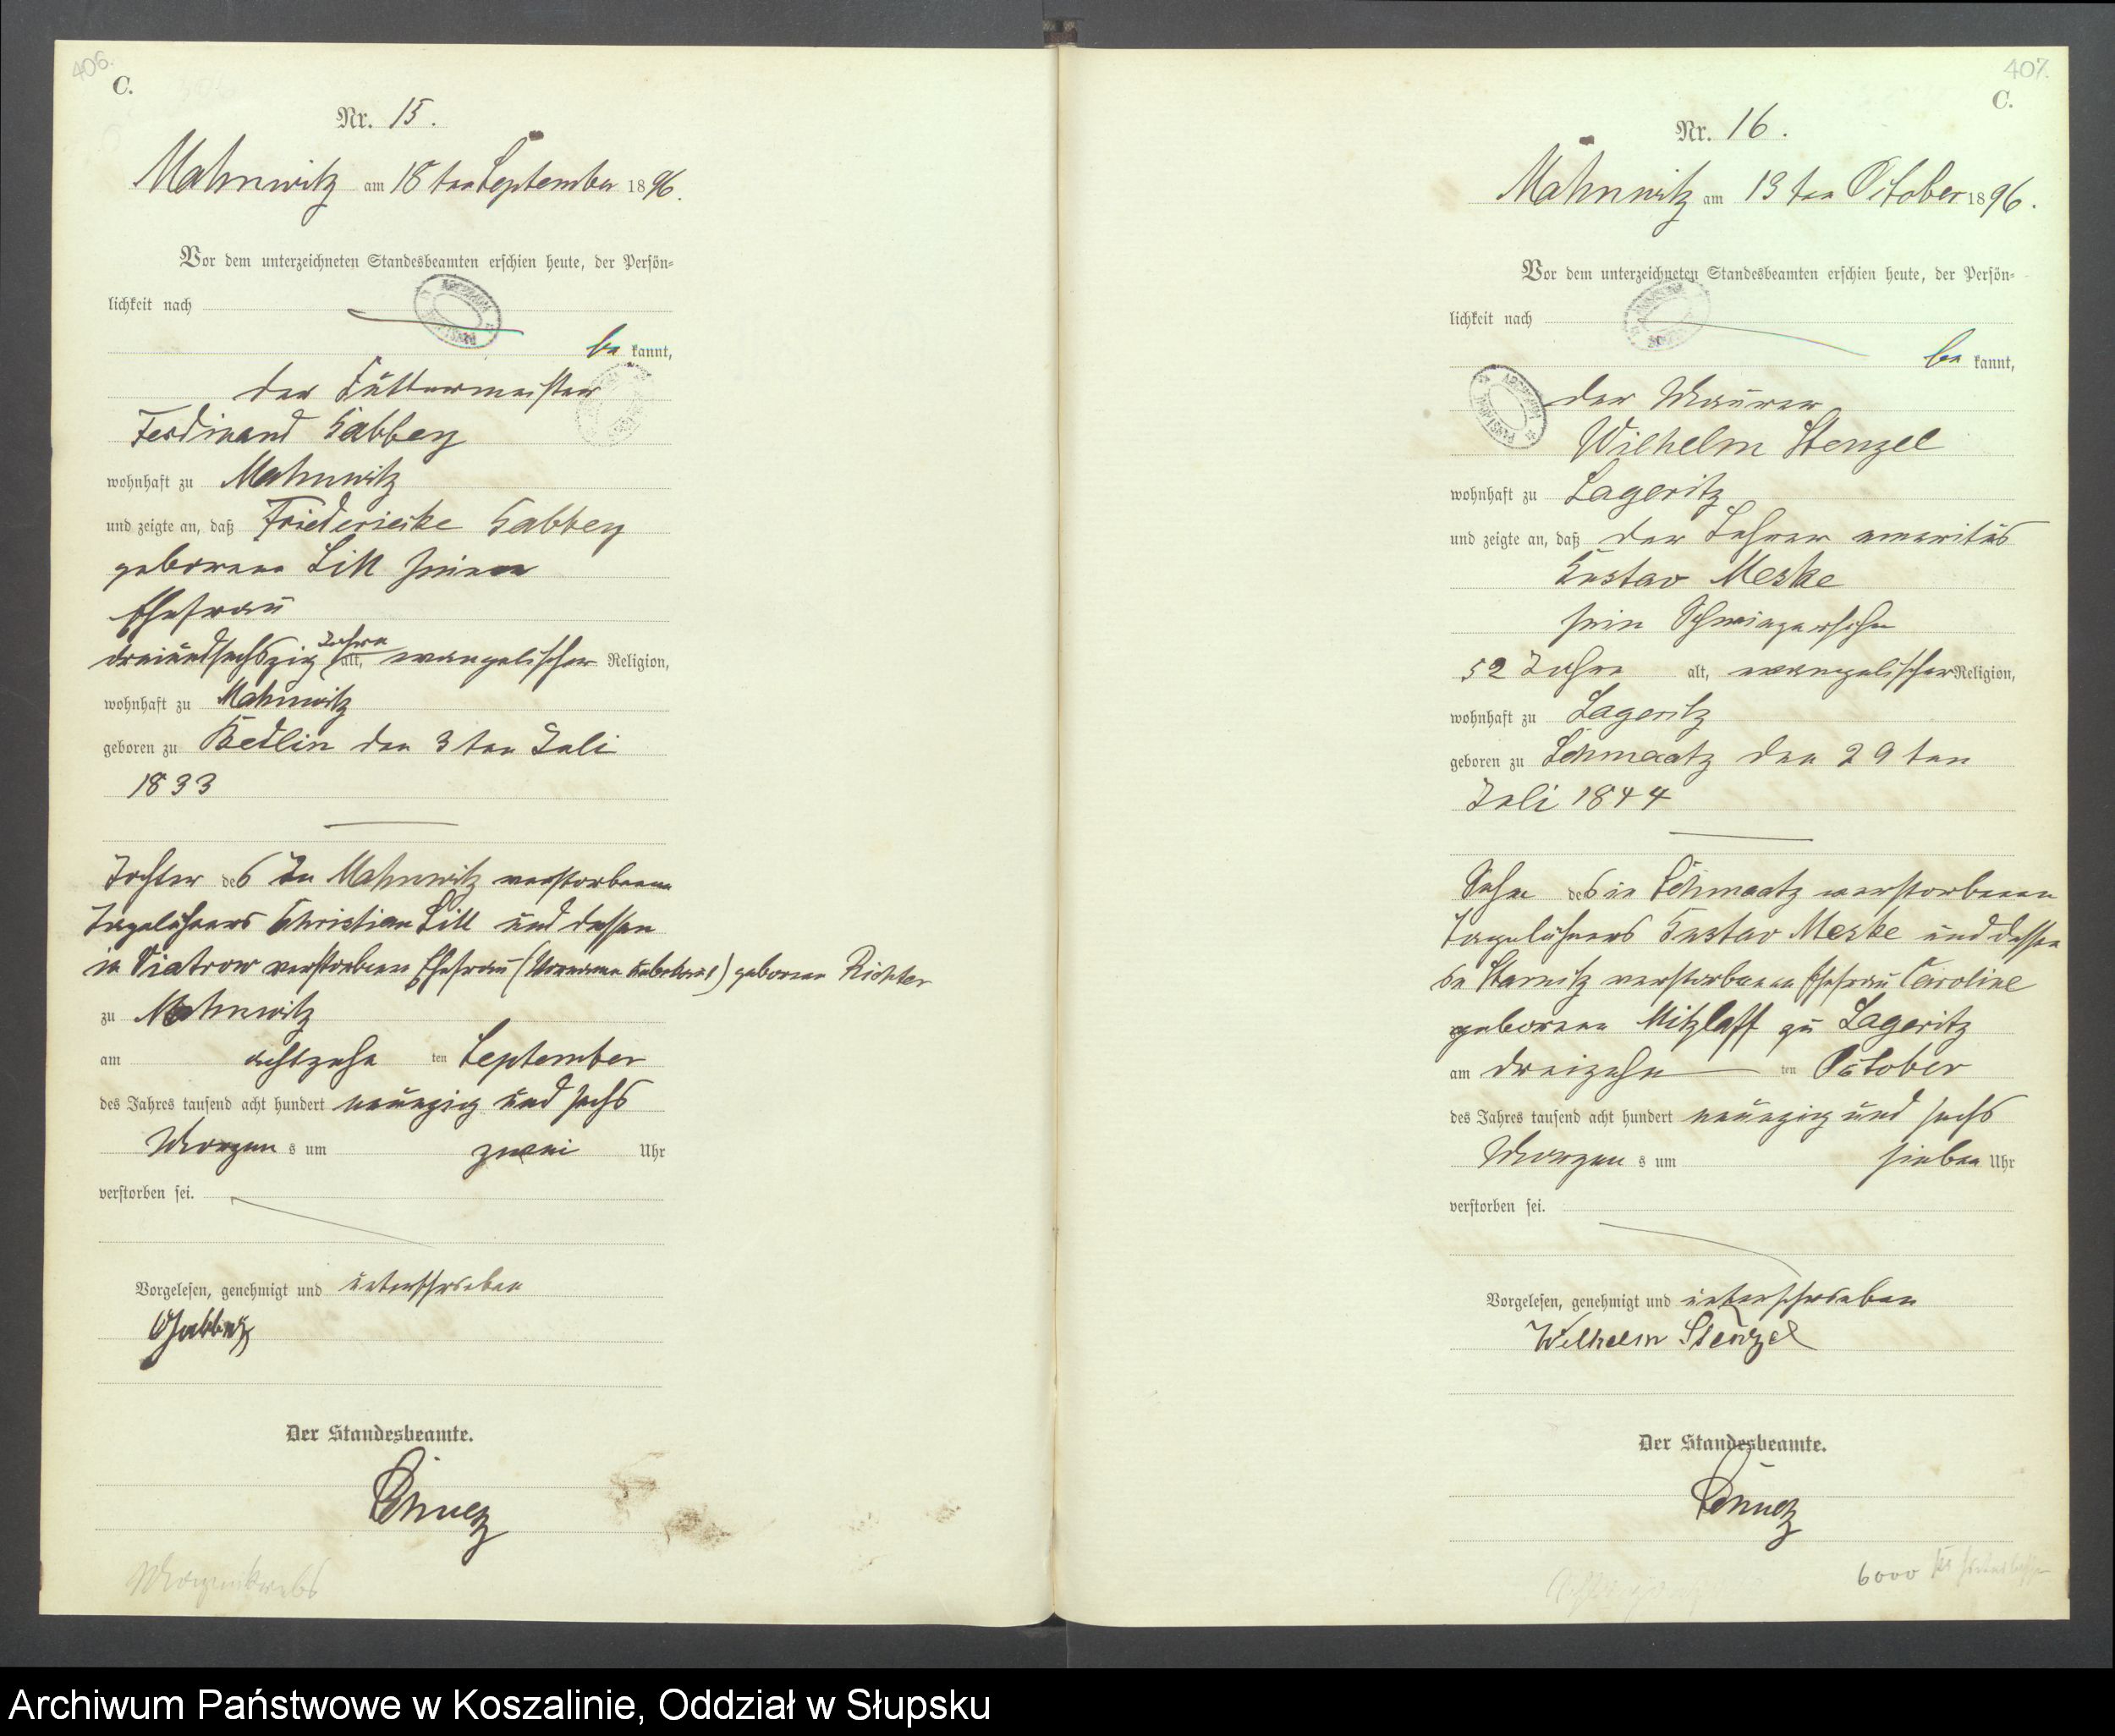 406.
C.
Nr. 15.
Mahnwitz am 18ten September 1896.
Vor dem unterzeichneten Standesbeamten erschien heute, der Persön-
lichkeit nach
be kannt,
der Futtermeister
Ferdinand Gabbey
wohnhaft zu Mahnwitz
und zeigte an, daß Friederieke Gabbey
geborene Lill seine
Ehefrau
dreiundsechszig Jahre alt, evangelischer Religion,
wohnhaft zu Mahnwitz
geboren zu Bedlin den 3ten Juli
1833
Tochter des zu Mahnwitz verstorbenen
Tagelöhners Christian Lill und dessen
in Viatrow verstorbenen Ehefrau (Vorname unbekannt) geborene Richter
zu Mahnwitz
am achtzehn ten September
des Jahres tausend acht hundert neunzig und sechs
Morgen s um zwei Uhr
verstorben sei.
Vorgelesen, genehmigt und unterschrieben
Gabbey
Der Standesbeamte.
Magenkrebs
407.
C.
Nr. 16.
Mahnwitz am 13ten October 1896.
Vor dem unterzeichneten Standesbeamten erschien heute, der Persön-
lichkeit nach
be kannt,
der Maurer
Wilhelm Stenzel
wohnhaft zu Lageritz
und zeigte an, daß der Lehrer emeritus
Gustav Meske
sein Schwiegersohn
52 Jahre alt, evangelischer Religion,
wohnhaft zu Lageritz
geboren zu Schmaatz den 29ten
Juli 1844
Sohn des in Schmaatz verstorbenen
Tagelöhners Gustav Meske und dessen
in Starnitz verstorbenen Ehefrau Caroline
geborene Mitzlaff zu Lageritz
am dreizehn ten October
des Jahres tausend acht hundert neunzig und sechs
Morgen s um sieben Uhr
verstorben sei.
Vorgelesen, genehmigt und unterschrieben
Wilhelm Stenzel
Der Standesbeamte.
6000
Archiwum Państwowe w Koszalinie, Oddział w Słupsku